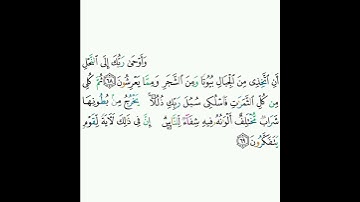 وَأَوْحَىٰ رَبُّكَ إِلَى ٱلنَّحْلِ
أَنِ ٱتَّخِذِى مِنَ ٱلْجِبَالِ بُيُوتًا وَمِنَ ٱلشَّجَرِ وَمِمَّا يَعْرِشُونَ ٦٨ ثُمَّ كُلِى
مِن كُلِّ ٱلثَّمَرَٰتِ فَٱسْلُكِى سُبُلَ رَبِّكِ ذُلُلًا ۚ يَخْرُجُ مِنۢ بُطُونِهَا
شَرَابٌ مُّخْتَلِفٌ أَلْوَٰنُهُۥ فِيهِ شِفَآءٌ لِّلنَّاسِ ۗ إِنَّ فِى ذَٰلِكَ لَءَايَةً لِّقَوْمٍ
يَتَفَكَّرُونَ ٦٩